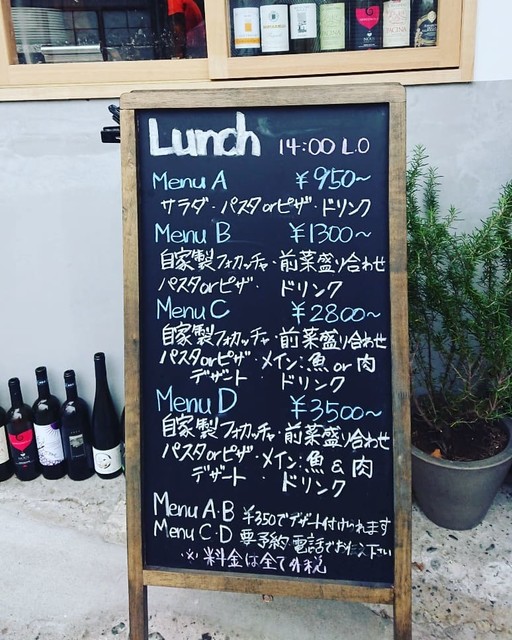 Lunch 14:00 L.O
Menu A ¥950〜
サラダ・パスタorピザ・ドリンク
Menu B ¥1300〜
自家製フォカッチャ・前菜盛り合わせ
パスタorピザ・ドリンク
Menu C ¥2800〜
自家製フォカッチャ・前菜盛り合わせ
パスタorピザ・メイン:魚 or 肉
デザート・ドリンク
Menu D ¥3500〜
自家製フォカッチャ・前菜盛り合わせ
パスタorピザ・メイン:魚 & 肉
デザート・ドリンク
Menu A・B ¥350でデザート付けられます
Menu C・D 要予約 電話でお伝え下さい
※料金は全て外税